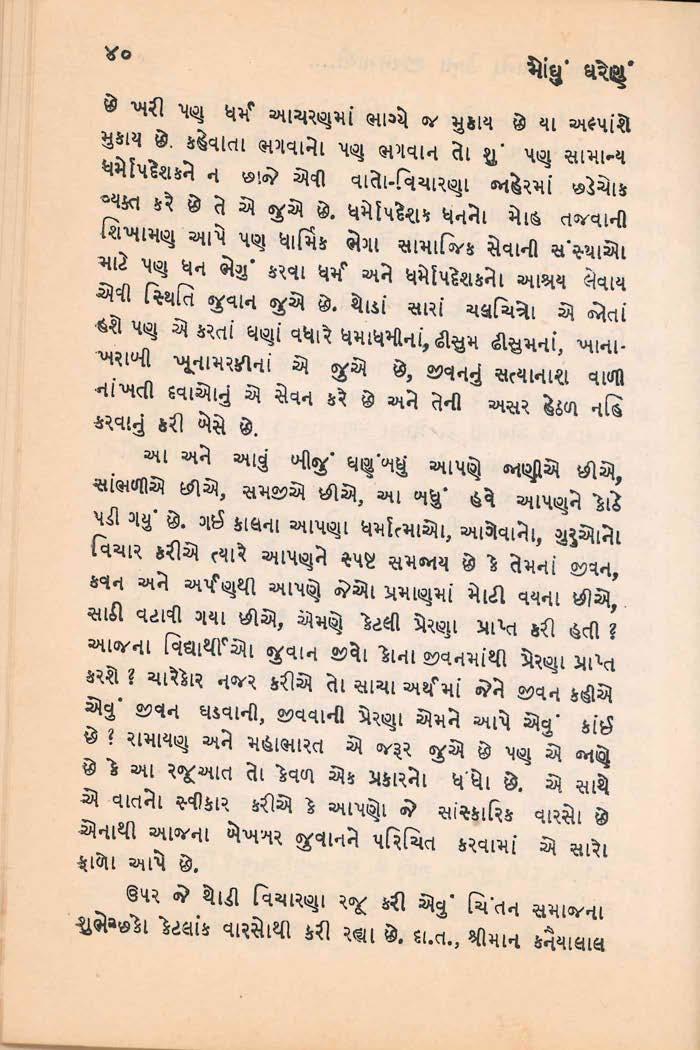 ૪૦
મોંઘું ઘરેણું
છે ખરી પણ ધર્મ આચરણમાં ભાગ્યે જ મુકાય છે યા અલ્પાંશે
મુકાય છે. કહેવાતા ભગવાનો પણ ભગવાન તો શું પણ સામાન્ય
ધર્મોપદેશકને ન છાજે એવી વાતો-વિચારણા જાહેરમાં છડેચોક
વ્યક્ત કરે છે તે એ જુએ છે. ધર્મોપદેશક ધનનો મોહ તજવાની
શિખામણ આપે પણ ધાર્મિક ભેગા સામાજિક સેવાની સંસ્થાઓ
માટે પણ ધન ભેગું કરવા ધર્મ અને ધર્મોપદેશકનો આશ્રય લેવાય
એવી સ્થિતિ જુવાન જુએ છે. થોડાં સારાં ચલચિત્રો એ જોતાં
હશે પણ એ કરતાં ઘણાં વધારે ધમાધમીનાં, ઢીસુમ ઢીસુમનાં, ખાના-
ખરાબી ખૂનામરકીનાં એ જુએ છે, જીવનનું સત્યાનાશ વાળી
નાંખતી દવાઓનું એ સેવન કરે છે અને તેની અસર હેઠળ નહિ
કરવાનું કરી બેસે છે.
આ અને આવું બીજું ઘણુંબધું આપણે જાણીએ છીએ,
સાંભળીએ છીએ, સમજીએ છીએ, આ બધું હવે આપણને કોઠે
પડી ગયું છે. ગઈ કાલના આપણા ધર્માત્માઓ, આગેવાનો, ગુરુઓનો
વિચાર કરીએ ત્યારે આપણને સ્પષ્ટ સમજાય છે કે તેમનાં જીવન,
કવન અને અર્પણથી આપણે જેઓ પ્રમાણમાં મોટી વયના છીએ,
સાઠી વટાવી ગયા છીએ, એમણે કેટલી પ્રેરણા પ્રાપ્ત કરી હતી?
આજના વિદ્યાર્થીઓ જુવાન જીવો કોના જીવનમાંથી પ્રેરણા પ્રાપ્ત
કરશે? ચારેકોર નજર કરીએ તો સાચા અર્થમાં જેને જીવન કહીએ
એવું જીવન ઘડવાની, જીવવાની પ્રેરણા એમને આપે એવું કાંઈ
છે? રામાયણ અને મહાભારત એ જરૂર જુએ છે પણ એ જાણે
છે કે આ રજૂઆત તો કેવળ એક પ્રકારનો ધંધો છે. એ સાથે
એ વાતનો સ્વીકાર કરીએ કે આપણો જે સાંસ્કારિક વારસો છે
એનાથી આજના બેખબર જુવાનને પરિચિત કરવામાં એ સારો
ફાળો આપે છે.
ઉપર જે થોડી વિચારણા રજૂ કરી એવું ચિંતન સમાજના
શુભેચ્છકો કેટલાંક વારસોથી કરી રહ્યા છે. દા.ત., શ્રીમાન કનૈયાલાલ